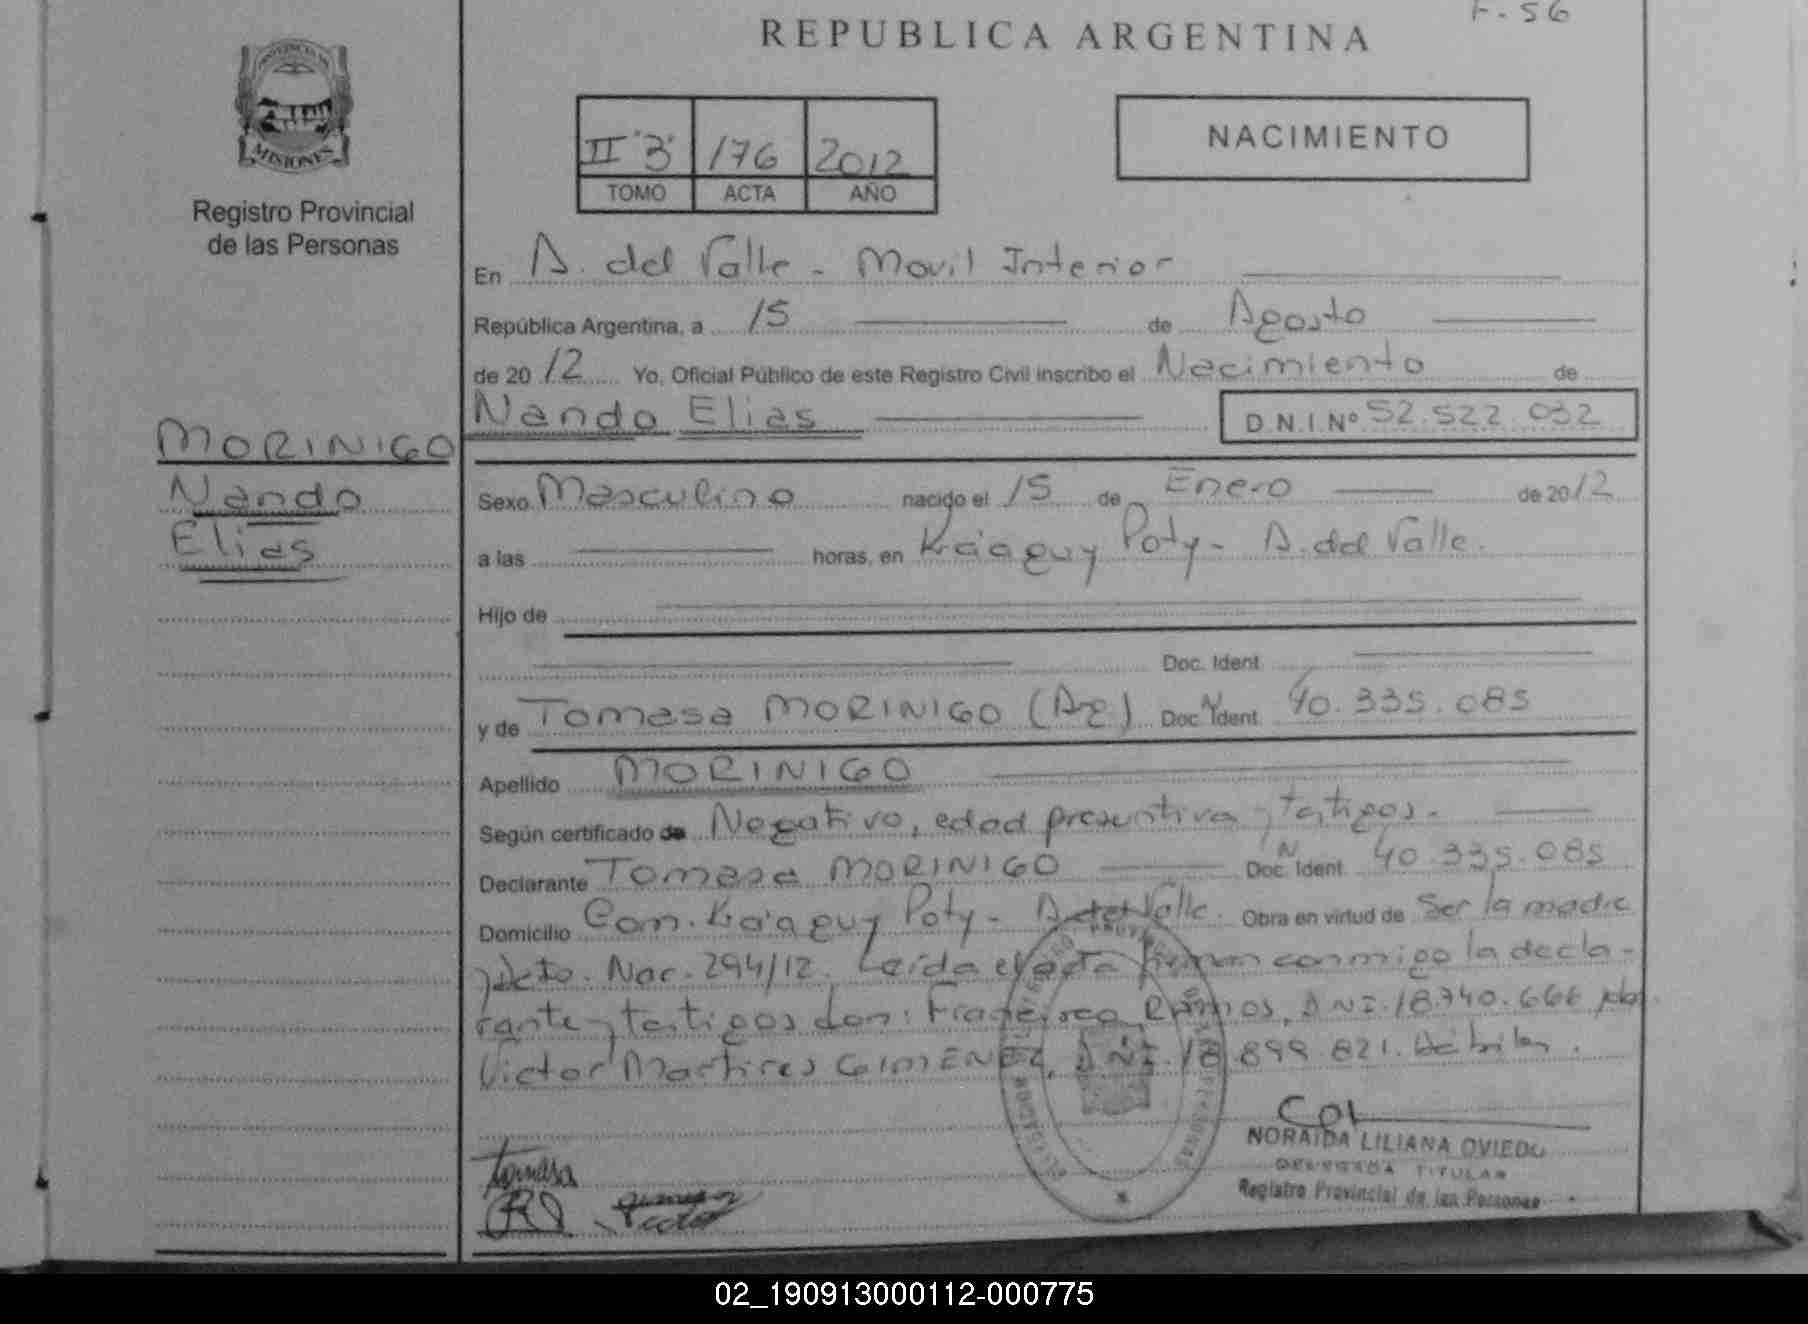 F-56
REPUBLICA ARGENTINA
PROVINCIA DE
MISIONES
Registro Provincial
de las Personas
II "3" 176 2012
TOMO ACTA AÑO
NACIMIENTO
En A. del Valle - Movil Interior
República Argentina, a 15 de Agosto
de 2012 Yo, Oficial Público de este Registro Civil inscribo el Nacimiento de
Nando Elias D.N.I.Nº 52.522.032
MORINIGO
Nando
Elias
Sexo Masculino nacido el 15 de Enero de 2012
a las horas, en Kaaguy Poty - A. del Valle.
Hijo de
Doc. Ident
y de Tomasa MORINIGO (Ag) Doc N Ident. 40.335.085
Apellido MORINIGO
Según certificado de Negativo, edad presuntiva y testigos.
Declarante Tomasa MORINIGO Doc. N Ident. 40.335.085
Domicilio Com. Kaaguy Poty - A. del Valle. Obra en virtud de Ser la madre
y Dcto. Nac. 294/12. Leída el acta firman conmigo la decla-
rante y testigos don: Francisco Ramos, DNI. 18.740.666
Victor Martires GIMENEZ, DNI. 18.899.821.
Tomasa
Victor
NORAIDA LILIANA OVIEDO
DELEGADA TITULAR
Registro Provincial de las Personas
02_190913000112-000775